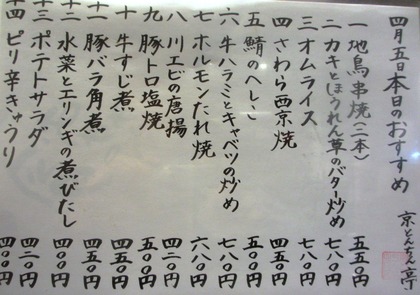 四月五日本日のおすすめ
京とんちん亭
一 地鳥串焼(二本) 五五〇円
二 カキとほうれん草のバター炒め 七八〇円
三 オムライス 七八〇円
四 さわら西京焼 五五〇円
五 鯖のへしこ 四五〇円
六 牛ハラミとキャベツの炒め 七八〇円
七 ホルモンたれ焼 六八〇円
八 川エビの唐揚 四二〇円
九 豚トロ塩焼 五五〇円
十 牛すじ煮 四五〇円
十一 豚バラ角煮 五五〇円
十二 水菜とエリンギの煮びたし 四〇〇円
十三 ポテトサラダ 四二〇円
十四 ピリ辛きゅうり 四〇〇円